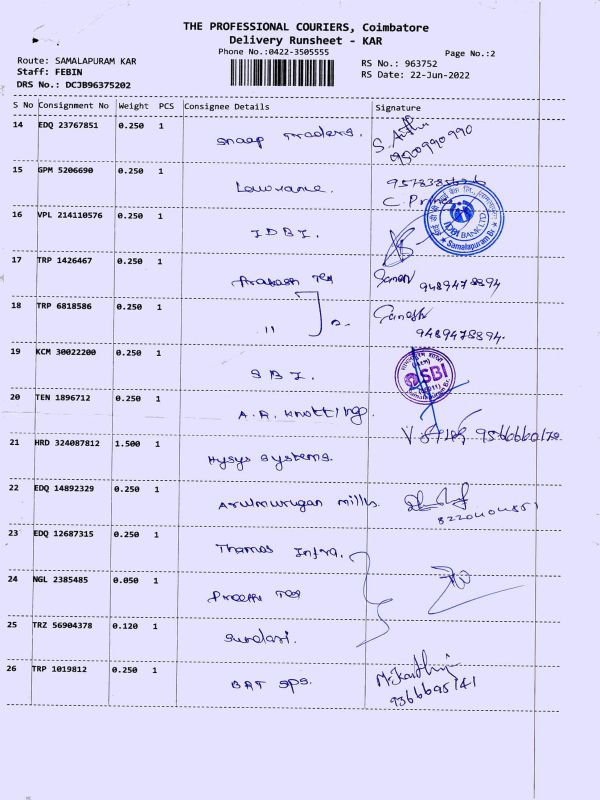 THE PROFESSIONAL COURIERS, Coimbatore
Delivery Runsheet - KAR
Phone No.:0422-3505555
Page No.:2
Route: SAMALAPURAM KAR
RS No.: 963752
Staff: FEBIN
RS Date: 22-Jun-2022
DRS No.: DCJB96375202
S No Consignment No Weight PCS Consignee Details Signature
14 EDQ 23767851 0.250 1 Snaap Traders. S.
9500990990
15 GPM 5206690 0.250 1 Lawrance.
C.
16 VPL 214110576 0.250 1 IDBI.
IDBI BANK LTD.
Samalapuram Br.
17 TRP 1426467 0.250 1 Prakash Tex 9489478894
18 TRP 6818586 0.250 1 " Ganesh
9489478894.
19 KCM 30022200 0.250 1 SBI. SBI
20 TEN 1896712 0.250 1 A.R. Knotting
V. 9566660170
21 HRD 324087812 1.500 1 Hysys Systems.
22 EDQ 14892329 0.250 1 Arulmurugan mills.
23 EDQ 12687315 0.250 1 Thamas Infra.
24 NGL 2385485 0.050 1 Preethi Tex
25 TRZ 56904378 0.120 1 Sundari.
26 TRP 1019812 0.250 1 BRT SPS. M. Karthi
9366695141